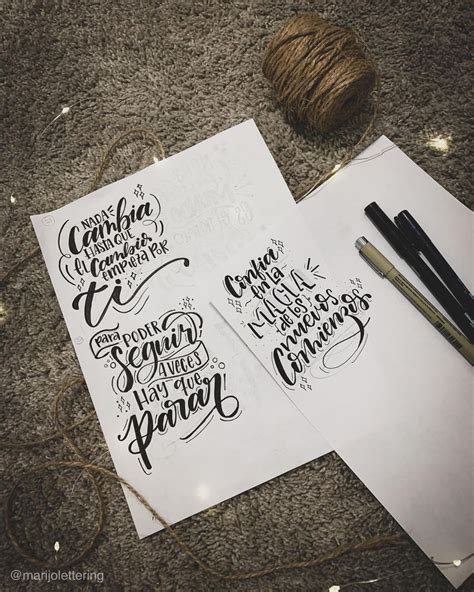 Nada
Cambia
Hasta que
el Cambio
empieza por
ti
Para poder
Seguir
a veces
Hay que
Parar
Confía
en la
MAGIA
de los
nuevos
Comienzos
@marijolettering